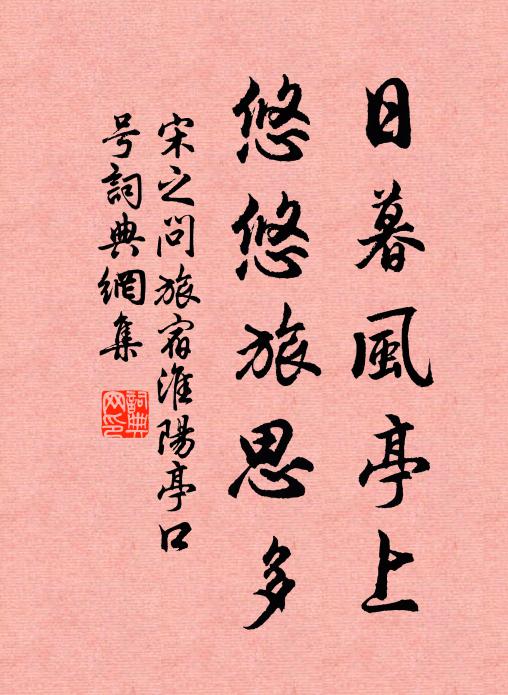 日暮風亭上
悠悠旅思多
宋之问旅宿淮陽亭口
号詞典網集
詞典网印